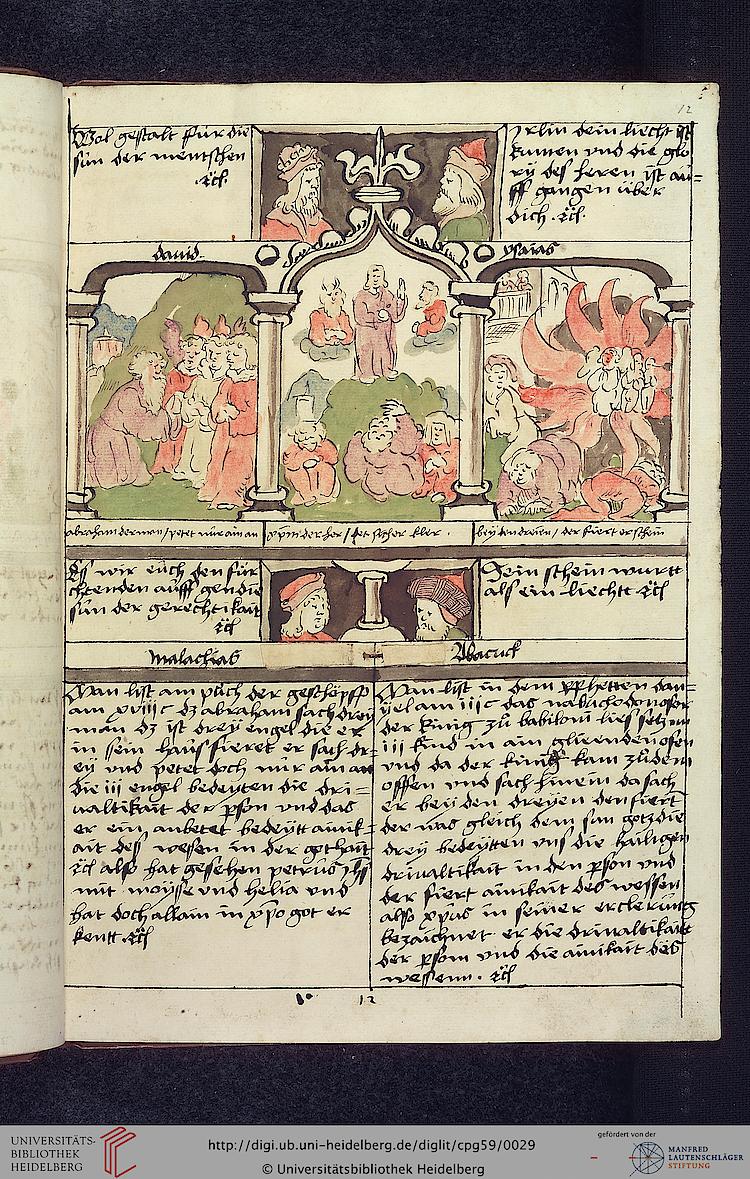 12
Wol gestalt für die
sün der mentschen
·Rcl·
Jrlm dein liecht ist
kumen vnd die glo
ry des heren ist au=
ff gangen über
dich ·Rcl·
dauid
ysaias
abraham der man / petet nür ain an
xpm der her / pet klar
bey den dreien / der fiert erschein
Es wir eüch den für
chtenden auff gen die
sün der gerechtikait
Rcl
Sein schein wurtt
als ein liechtt Rcl
Malachias
Abacuck
Man list am puch der geschöpff
am xviii c dz abraham sach drey
man dz ist drey engel die er
in sein haus fieret er sach dr=
ey vnd petet doch nür ain an
die iii engel bedeyten die dri=
ualtikait der pson vnd das
er ein anbetet bedeytt ainik=
ait des wesen in der gothait
Rcl also hat gesehen petrus yhs
mit moyse vnd helia vnd
hat doch allain in xpo got er
kentt Rcl
Man list in dem pphetten dan=
yel am iii c das nabuchodonosor
der künig zu babiloni lies setzen
iii kind in ain glüenden ofen
vnd da der künig kam zu dem
offen vnd sach hinein da sach
er bey den dreyen den fiert
der was gleich dem sun gotz die
drey bedeytten vns die hailigen
driualtikait in den pson vnd
der fiert ainikait des wessen
also xpus in seiner erclerung
bezaichnet er die driualtikait
der pson vnd die ainikait des
wesenn · Rcl
12
UNIVERSITÄTS-
BIBLIOTHEK
HEIDELBERG
http://digi.ub.uni-heidelberg.de/diglit/cpg59/0029
© Universitätsbibliothek Heidelberg
gefördert von der
MANFRED
LAUTENSCHLÄGER
STIFTUNG